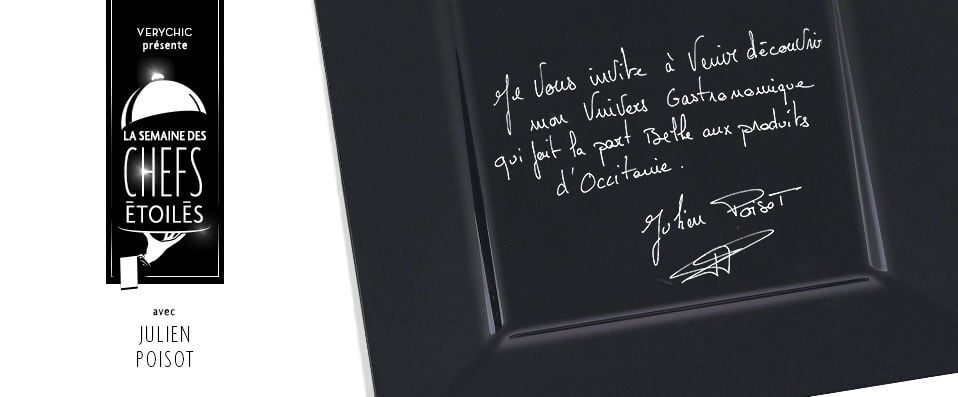 VERYCHIC
présente
LA SEMAINE DES
CHEFS
ÉTOILÉS
avec
JULIEN
POISOT
Je Vous invite à Venir découvrir
mon Univers Gastronomique
qui fait la part Belle aux produits
d'Occitanie.
Julien Poisot